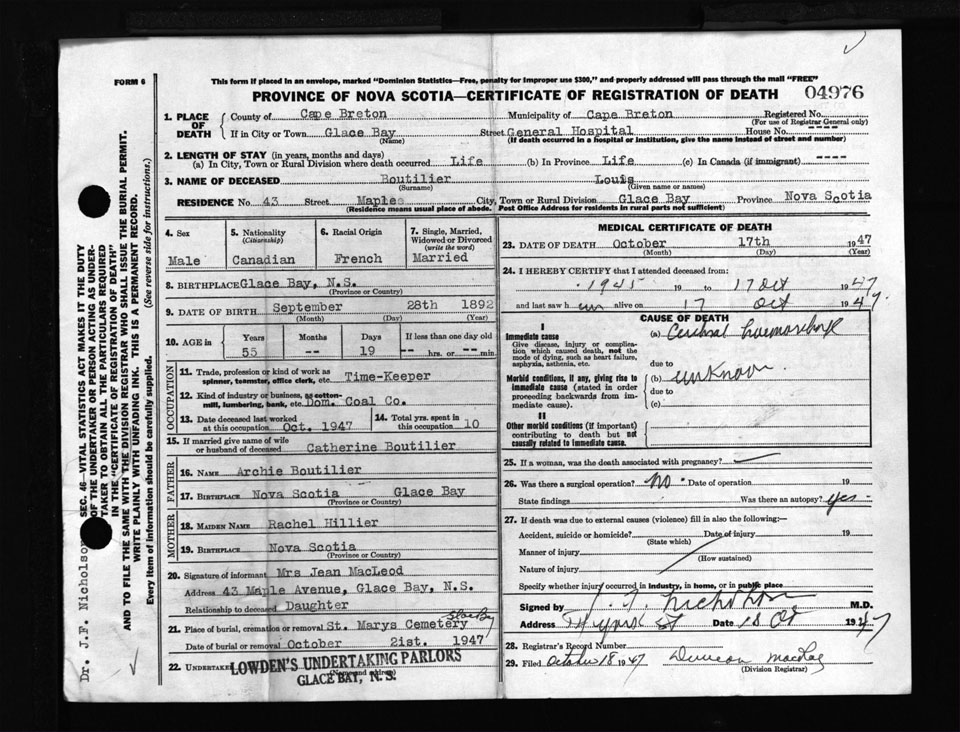 FORM 6
This form if placed in an envelope, marked "Dominion Statistics—Free, penalty for improper use $300," and properly addressed will pass through the mail "FREE"
PROVINCE OF NOVA SCOTIA—CERTIFICATE OF REGISTRATION OF DEATH
04976
1. PLACE OF DEATH
County of Cape Breton Municipality of Cape Breton Registered No.
(For use of Registrar General only)
If in City or Town Glace Bay Street General Hospital House No. ----
(Name) (If death occurred in a hospital or institution, give the name instead of street and number)
2. LENGTH OF STAY (in years, months and days)
(a) In City, Town or Rural Division where death occurred Life (b) In Province Life (c) In Canada (if immigrant) ----
3. NAME OF DECEASED Boutilier Louis
(Surname) (Given name or names)
RESIDENCE No. 43 Street Maple City, Town or Rural Division Glace Bay Province Nova Scotia
(Residence means usual place of abode. Post Office Address for residents in rural parts not sufficient)
4. Sex
Male
5. Nationality
(Citizenship)
Canadian
6. Racial Origin
French
7. Single, Married, Widowed or Divorced
(write the word)
Married
8. BIRTHPLACE Glace Bay, N.S.
(Province or Country)
9. DATE OF BIRTH September 28th 1892
(Month) (Day) (Year)
10. AGE in
Years Months Days If less than one day old
55 -- 19 -- hrs. or -- min.
OCCUPATION
11. Trade, profession or kind of work as spinner, teamster, office clerk, etc. Time-Keeper
12. Kind of industry or business, as cotton-mill, lumbering, bank, etc. Dom. Coal Co.
13. Date deceased last worked at this occupation Oct. 1947
14. Total yrs. spent in this occupation 10
15. If married give name of wife or husband of deceased Catherine Boutilier
FATHER
16. NAME Archie Boutilier
17. BIRTHPLACE Nova Scotia Glace Bay
(Province or Country)
MOTHER
18. MAIDEN NAME Rachel Hillier
19. BIRTHPLACE Nova Scotia
(Province or Country)
20. Signature of informant Mrs Jean MacLeod
Address 43 Maple Avenue, Glace Bay, N.S.
Relationship to deceased Daughter
21. Place of burial, cremation or removal St. Marys Cemetery Glace Bay
Date of burial or removal October 21st. 1947
22. UNDERTAKER
LOWDEN'S UNDERTAKING PARLORS
(Name and address)
GLACE BAY, N. S.
MEDICAL CERTIFICATE OF DEATH
23. DATE OF DEATH October 17th 1947
(Month) (Day) (Year)
24. I HEREBY CERTIFY that I attended deceased from:
1945 19 to 17 Oct 1947
and last saw him alive on 17 Oct 1947
CAUSE OF DEATH
I
Immediate cause
Give disease, injury or complication which caused death, not the mode of dying, such as heart failure, asphyxia, asthenia, etc.
(a) Cerebral haemorrhage
due to
Morbid conditions, if any, giving rise to immediate cause (stated in order proceeding backwards from immediate cause).
(b) unknown
due to
(c)
II
Other morbid conditions (if important) contributing to death but not causally related to immediate cause.
25. If a woman, was the death associated with pregnancy?
26. Was there a surgical operation? No Date of operation 19
State findings Was there an autopsy? yes
27. If death was due to external causes (violence) fill in also the following:—
Accident, suicide or homicide? Date of injury 19
(State which)
Manner of injury
(How sustained)
Nature of injury
Specify whether injury occurred in industry, in home, or in public place
Signed by J. F. Nicholson M.D.
Address York St Date 18 Oct 1947
28. Registrar's Record Number
29. Filed October 18 1947 Duncan
(Division Registrar)
SEC. 46—VITAL STATISTICS ACT MAKES IT THE DUTY
OF THE UNDERTAKER OR PERSON ACTING AS UNDER-
TAKER TO OBTAIN ALL THE PARTICULARS REQUIRED
IN THE "CERTIFICATE OF REGISTRATION OF DEATH"
AND TO FILE THE SAME WITH THE DIVISION REGISTRAR WHO SHALL ISSUE THE BURIAL PERMIT.
WRITE PLAINLY WITH UNFADING INK. THIS IS A PERMANENT RECORD.
Every item of information should be carefully supplied. (See reverse side for instructions.)
Dr. J.F. Nicholson